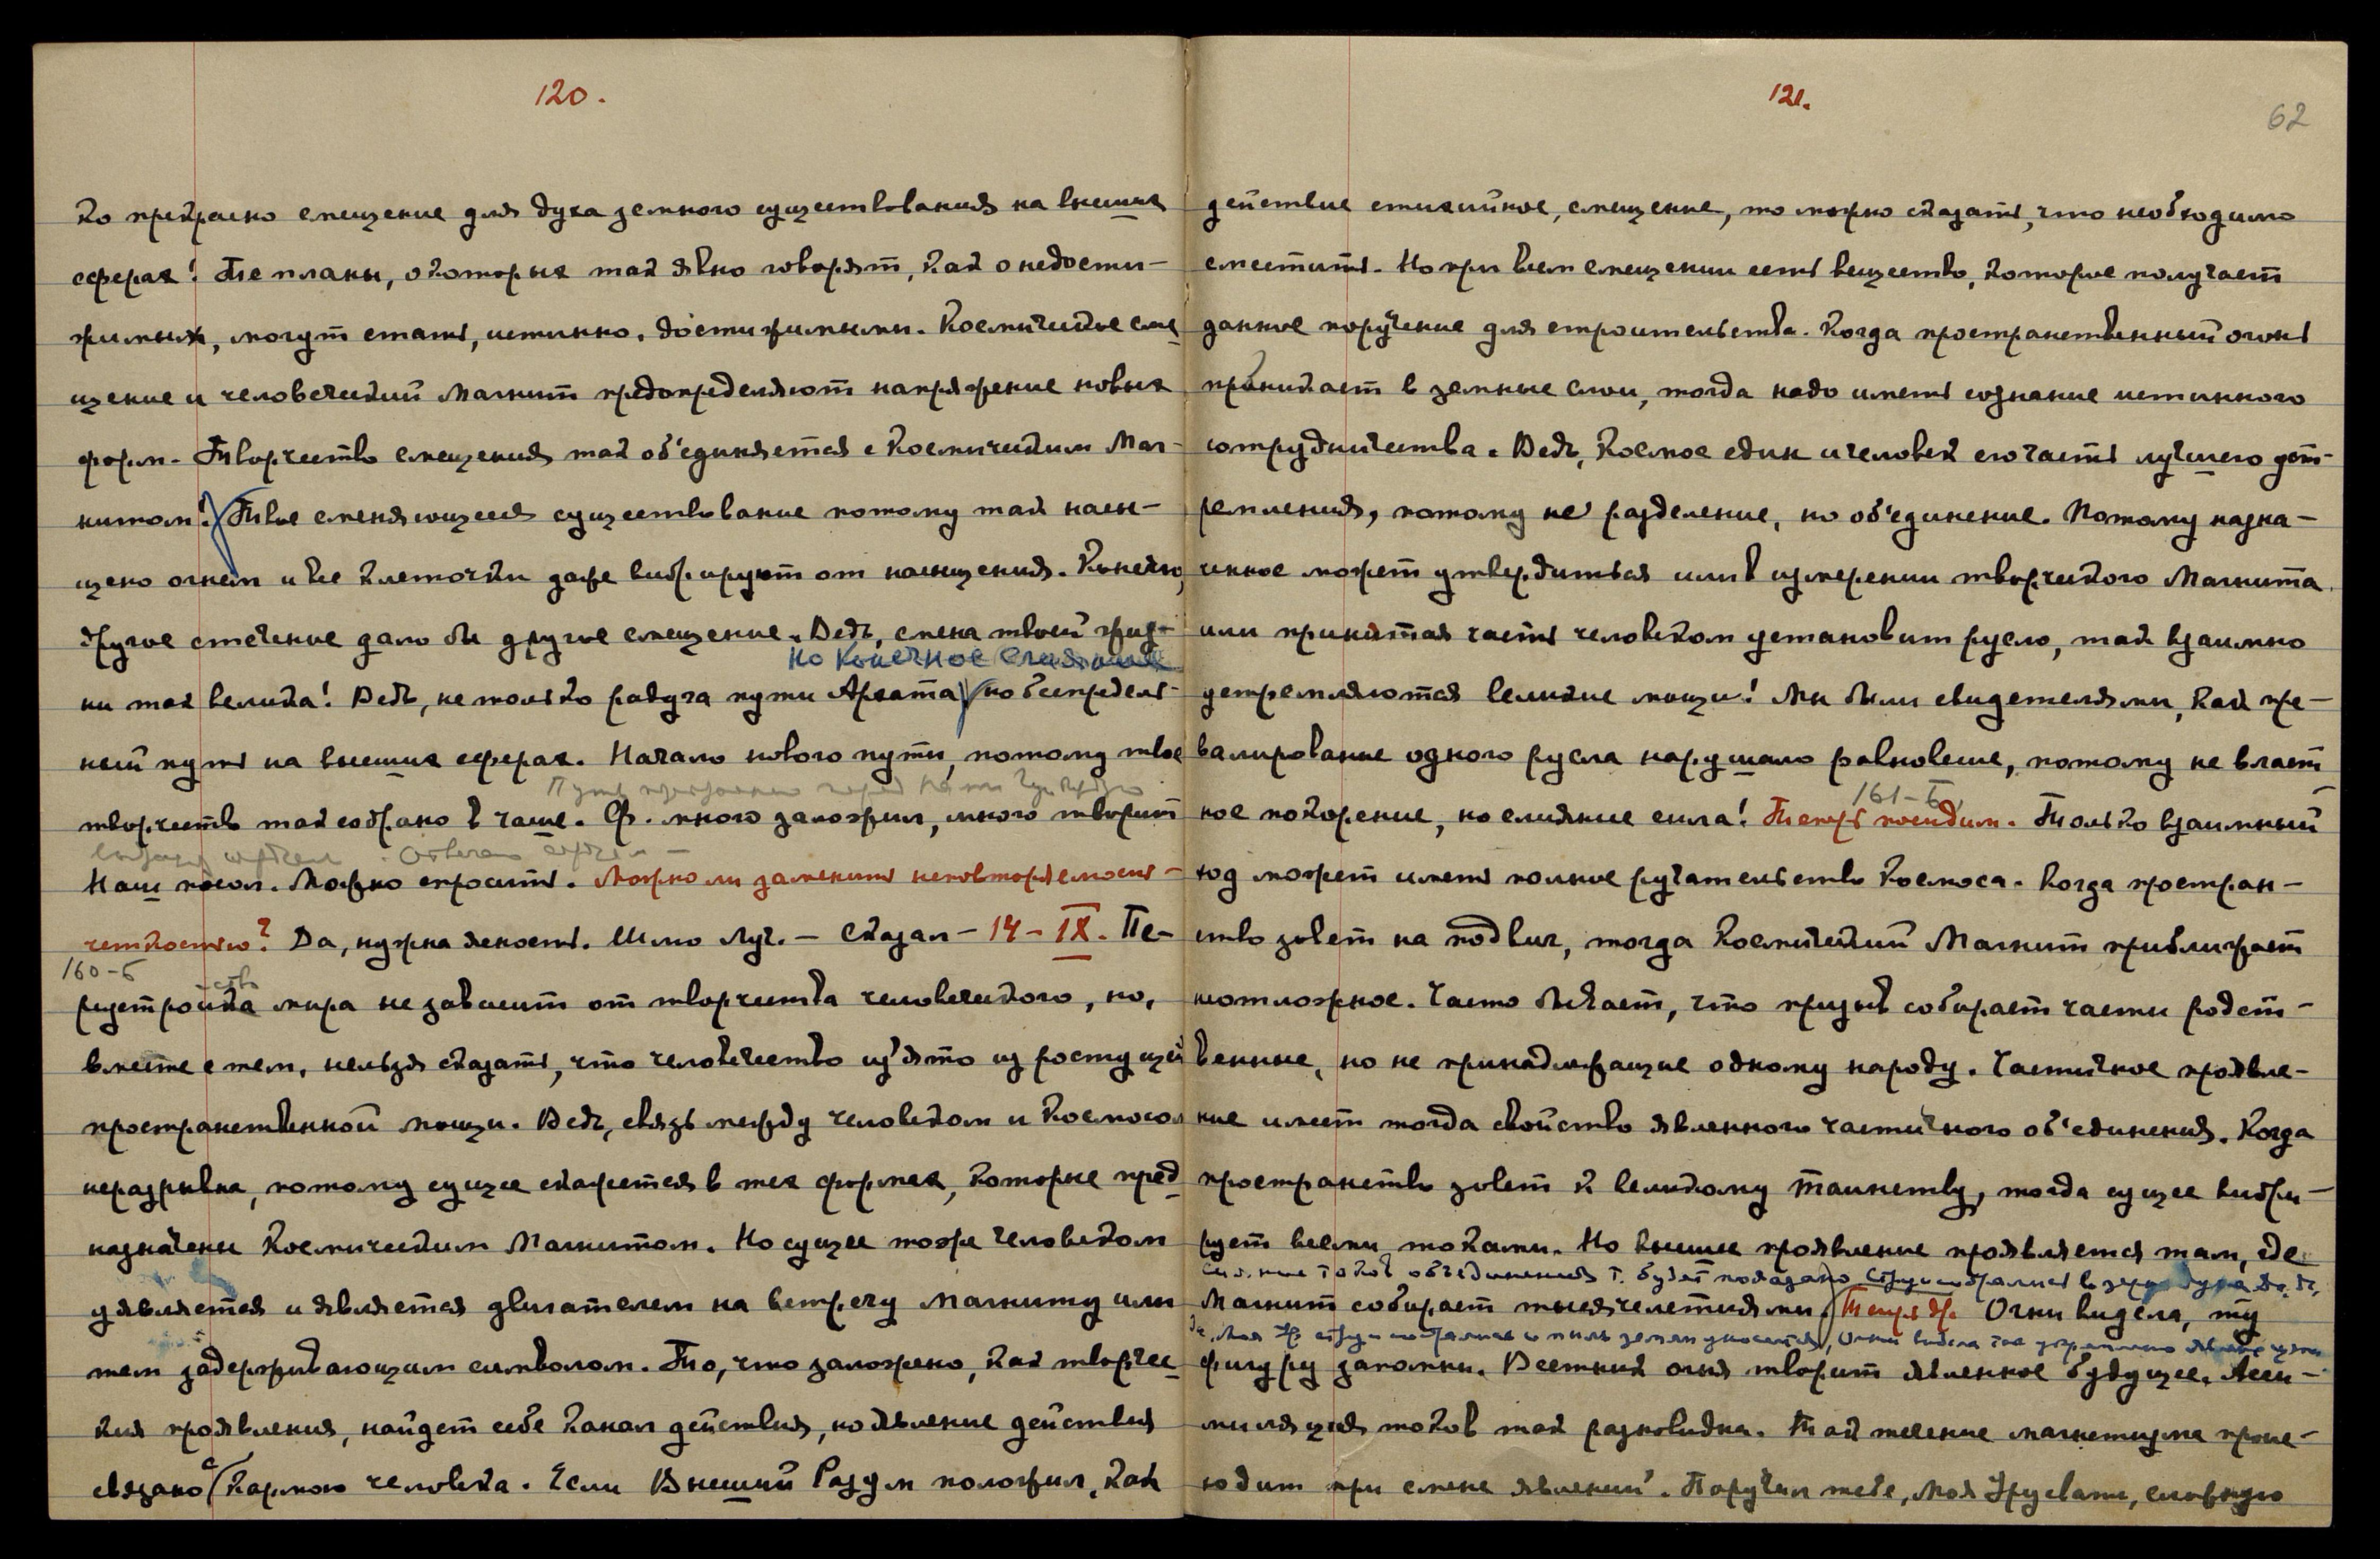 120.
ко прекрасно смещение для духа земного существования на высших
сферах! Те планы, о которых так явно говорят, как о недости-
жимых, могут стать, истинно, достижимыми. Космическое сме-
щение и человеческий Магнит предопределяют напряжение новых
форм. Творчество смещения так об'единяется с Космическим Маг-
нитом! Твое сменяющееся существование потому так насы-
щено огнем и все клеточки даже вибрируют от насыщения. Конечно,
другое стечение дало бы другое смещение. Ведь, смена твоей жиз-
но конечное слияние
ни так велика! Ведь, не только радуга пути Архата, но беспредель-
ный путь на высших сферах. Начало нового пути, потому твое
Путь
творчество так собрано в чаше. Ф. много заложил, много творит
сердцем
Наш посол. Можно спросить. Можно ли заменить неповторяемость-
четкостью? Да, нужна ясность. Шлю Луч. — Сказал — 14 - IX. Пе-
160-б
-ство
реустройка мира не зависит от творчества человеческого, но,
вместе с тем, нельзя сказать, что человечество из'ято из растущей
пространственной мощи. Ведь, связь между человеком и Космосом
неразрывна, потому сущее скажется в тех формах, которые пред-
назначены Космическим Магнитом. Но сущее тоже человеком
уявляется и является двигателем на встречу Магниту или
тем задерживающим символом. То, что заложено, как творчес-
кия проявления, найдет себе канал действия, но явление действия
связано с кармою человека. Если Высший Разум положил, как
121.
62
действие стихийное, смещение, то можно сказать, что необходимо
сместить. Но при всем смещении есть вещество, которое получает
данное поручение для строительства. Когда пространственный огонь
проникает в земные слои, тогда надо иметь сознание истинного
сотрудничества. Ведь, Космос един и человек его часть лучшего уст-
ремления, потому не разделение, но об'единение. Потому назна-
ченное может утвердиться или в измерении творческого Магнита
или принятая часть человеком установит русло, так взаимно
устремляются великие мощи! Мы были свидетелями, как пре-
валирование одного русла нарушало равновесие, потому не власт-
161-б
ное покорение, но слияние сила! Теперь последим. Только взаимный
ход может иметь полное ручательство Космоса. Когда простран-
ство зовет на подвиг, тогда Космический Магнит приближает
неотложное. Часто бывает, что призыв собирает части родст-
венные, но не принадлежащие одному народу. Частичное проявле-
ние имеет тогда свойство явленного частичного об'единения. Когда
пространство зовет к великому таинству, тогда сущее вибри-
рует всеми токами. Но высшее проявление проявляется там, где
слияние токов объединения т. будет показано струи собрались в зерно духа
Магнит собирает тысячелетиями. Теперь др. Огни видела, ту
да, Моя Ур. струи Огни видела
фигуру запомни. Вестник огня творит явленное будущее. Асси-
миляция токов так разновидна. Так течение магнетизма проис-
ходит при смене явлений. Поручил тебе, Моя Урусвати, сложную